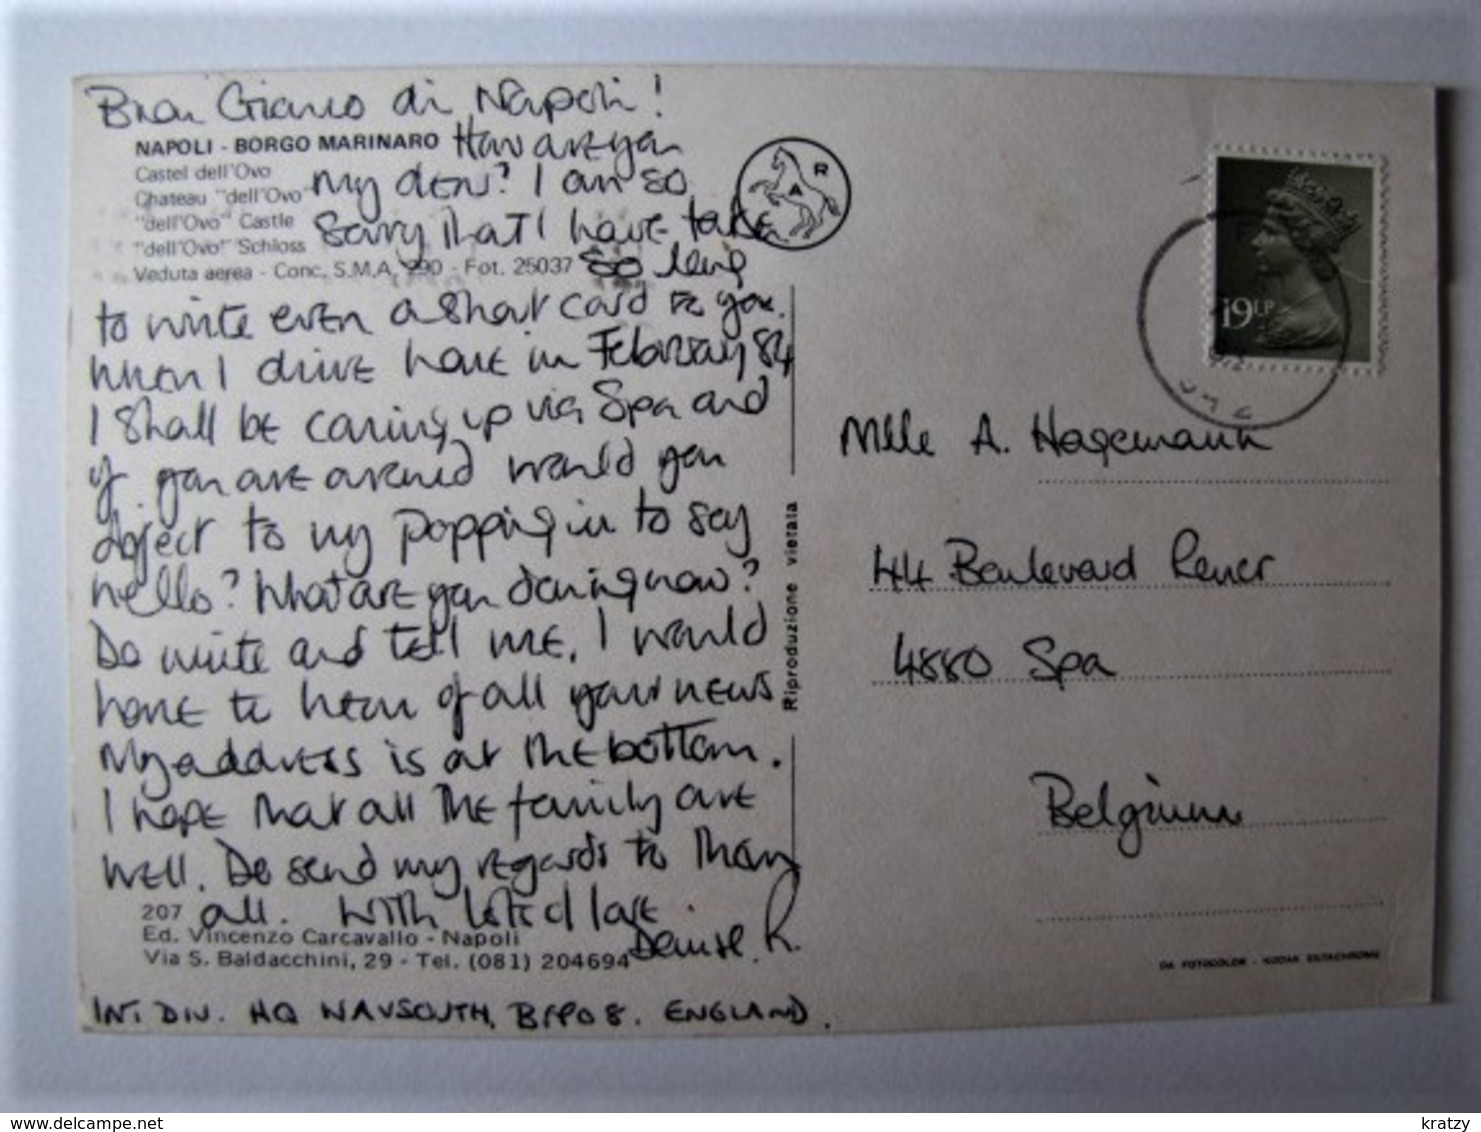 Buon Giorno di Napoli!
NAPOLI - BORGO MARINARO
Castel dell'Ovo
Chateau "dell'Ovo"
"dell'Ovo" Castle
"dell'Ovo" Schloss
Veduta aerea - Conc. S.M.A. 290 - Fot. 25037
How are you
my dear? I am so
sorry that I have taken
so long
to write even a short card to you.
When I drive home in February 84
I shall be coming up via Spa and
if you are around would you
object to my popping in to say
hello? What are you doing now?
Do write and tell me. I would
love to hear of all your news
My address is at the bottom.
I hope that all the family are
well. Do send my regards to them
all. With lots of love.
Denise. R.
207
Ed. Vincenzo Carcavallo - Napoli
Via S. Baldacchini, 29 - Tel. (081) 204694
INT. DIV. HQ NAVSOUTH, BFPO 8. ENGLAND.
Riproduzione vietata
R
A
19P
Mlle A. Hagemann
44 Boulevard Rener
4880 Spa
Belgium
DA FOTOCOLOR - KODAK EKTACHROME
delcampe.net
kratzy